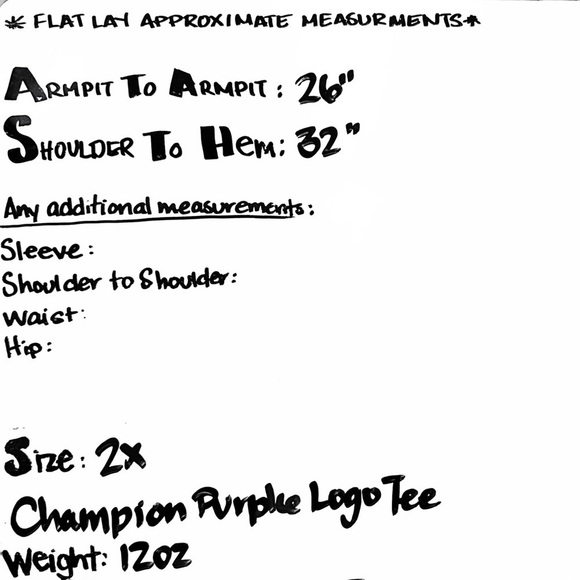 * FLAT LAY APPROXIMATE MEASURMENTS*
ARMPIT TO ARMPIT: 26"
SHOULDER TO HEM: 32"
Any additional measurements:
Sleeve:
Shoulder to Shoulder:
Waist:
Hip:
Size: 2X
Champion Purple Logo Tee
Weight: 12oz